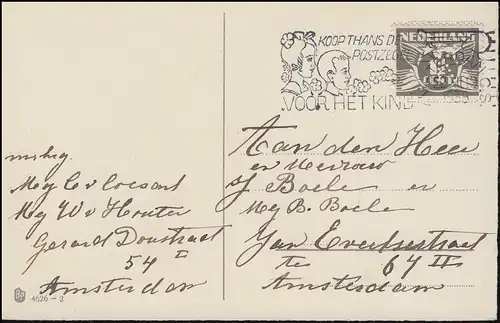 KOOP THANS DE
POSTZEG
VOOR HET KIND
NEDERLAND
Mej W v Houten
Gerard Doustraat
54 I
Amsterdam
Aan den Heer
en Mevrouw
J Boele en
Mej B. Boele
Jan Evertsestraat
te 64 II
Amsterdam
4626-2